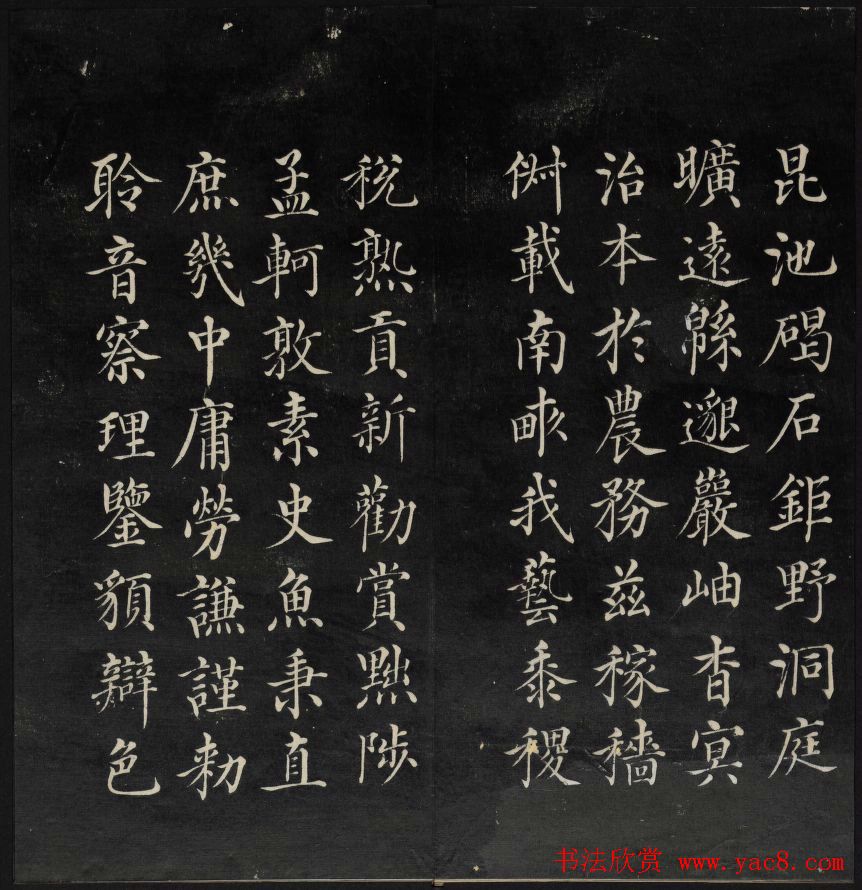 昆池碣石鉅野洞庭
曠遠緜邈巖岫杳冥
治本於農務茲稼穡
俶載南畝我藝黍稷
稅熟貢新勸賞黜陟
孟軻敦素史魚秉直
庶幾中庸勞謙謹勑
聆音察理鑒貌辯色
书法欣赏 www.yac8.com